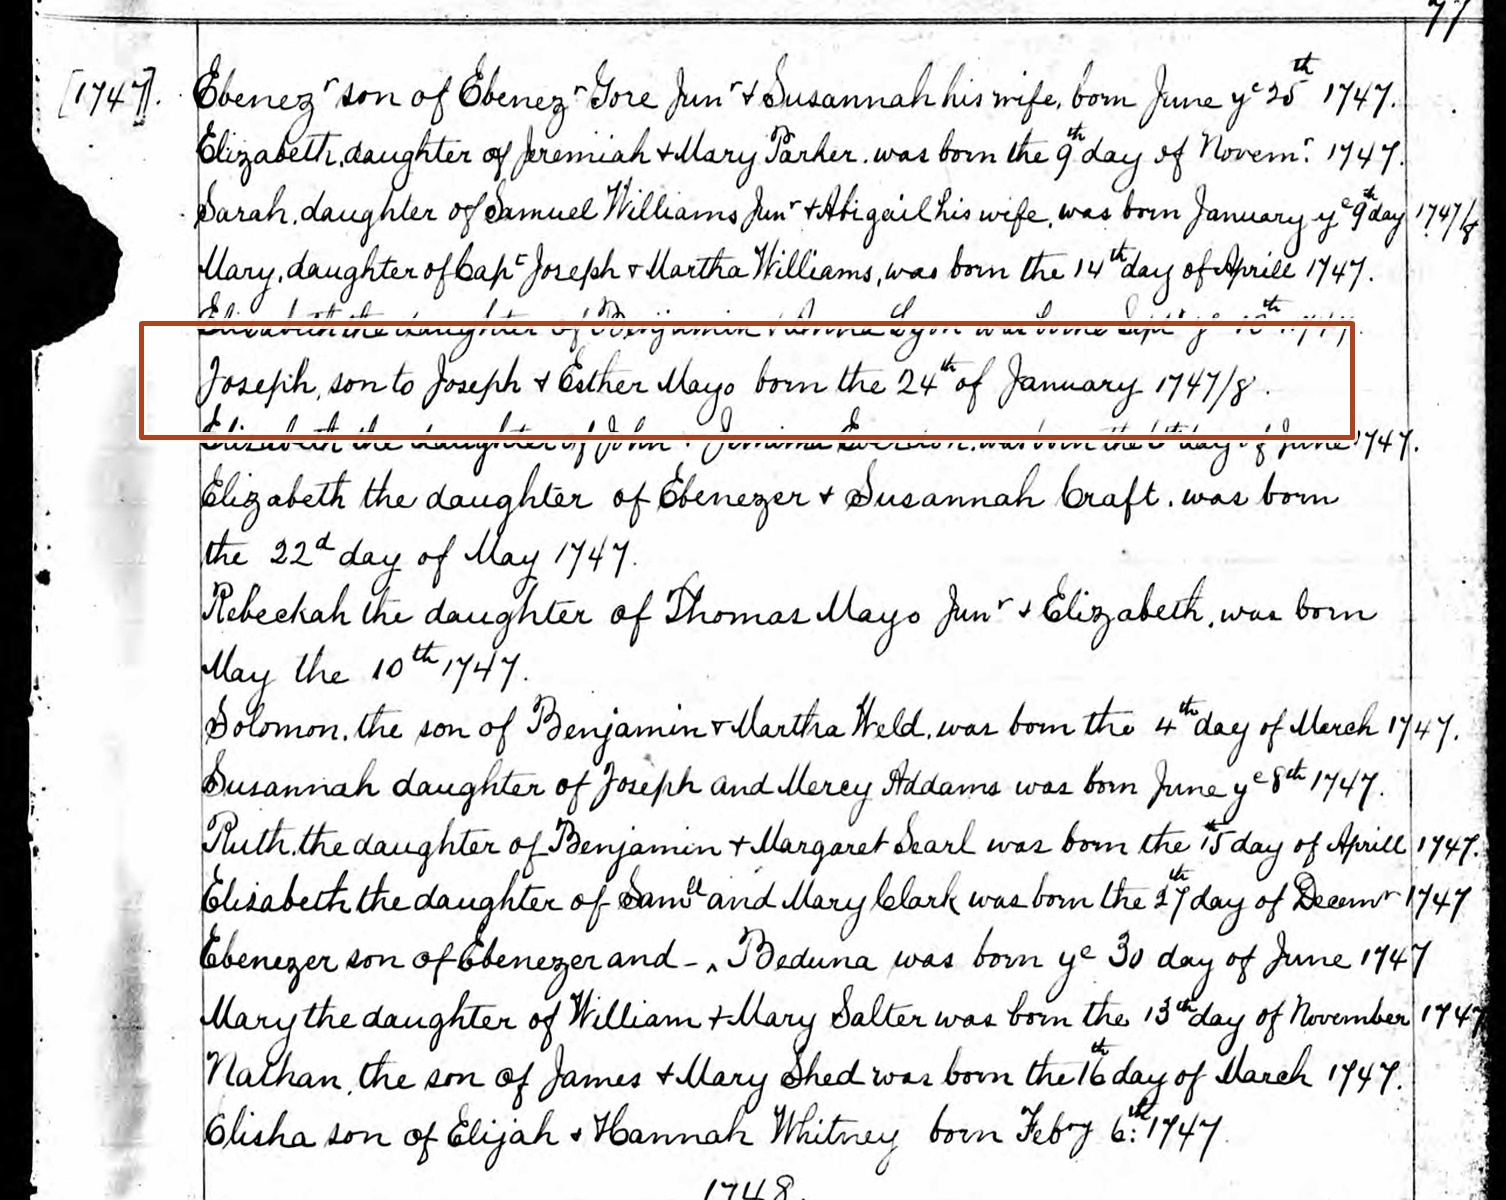 77
[1747]. Ebenezr son of Ebenezr Gore Junr & Susannah his wife, born June ye 25th 1747.
Elizabeth, daughter of Jeremiah & Mary Parker. was born the 9th day of Novemr. 1747.
Sarah, daughter of Samuel Williams Junr & Abigail his wife, was born January ye 9th day 1747/8
Mary, daughter of Capt Joseph & Martha Williams, was born the 14th day of Aprill 1747.
Elizabeth the daughter of Benjamin & Anna Lyon was borne Sept ye th 1747.
Joseph, son to Joseph & Esther Mayo born the 24th of January 1747/8.
Elizabeth the daughter of John & Jemima Everson. was born the 6th day of June 1747.
Elizabeth the daughter of Ebenezer & Susannah Craft. was born
the 22d day of May 1747.
Rebeckah the daughter of Thomas Mayo Junr & Elizabeth, was born
May the 10th 1747.
Solomon, the son of Benjamin & Martha Weld, was born the 4th day of March 1747.
Susannah daughter of Joseph and Mercy Addams was born June ye 8th 1747.
Ruth, the daughter of Benjamin & Margaret Searl was born the 15th day of Aprill 1747.
Elisabeth the daughter of Samll and Mary Clark was born the 27th day of Decemr 1747
Ebenezer son of Ebenezer and - ^ Beduna was born ye 30 day of June 1747
Mary the daughter of William & Mary Salter was born the 13th day of November 1747
Nathan, the son of James & Mary Shed was born the 16th day of March 1747.
Elisha son of Elijah & Hannah Whitney born Febry 6th: 1747
1748.